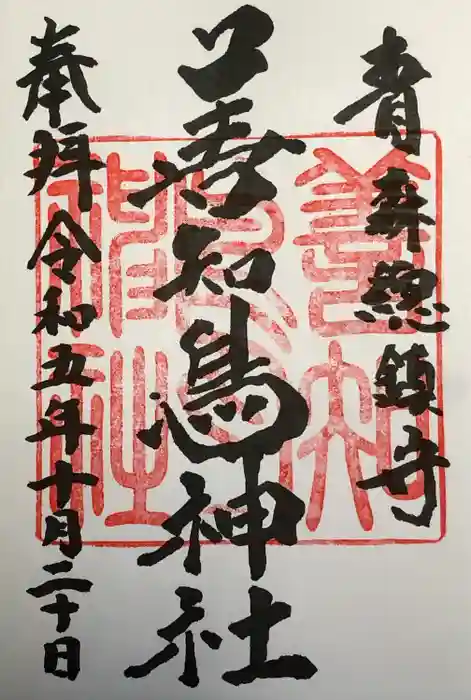 青森總鎮守
善知鳥神社
奉拝 令和五年十月二十日
善知鳥神社